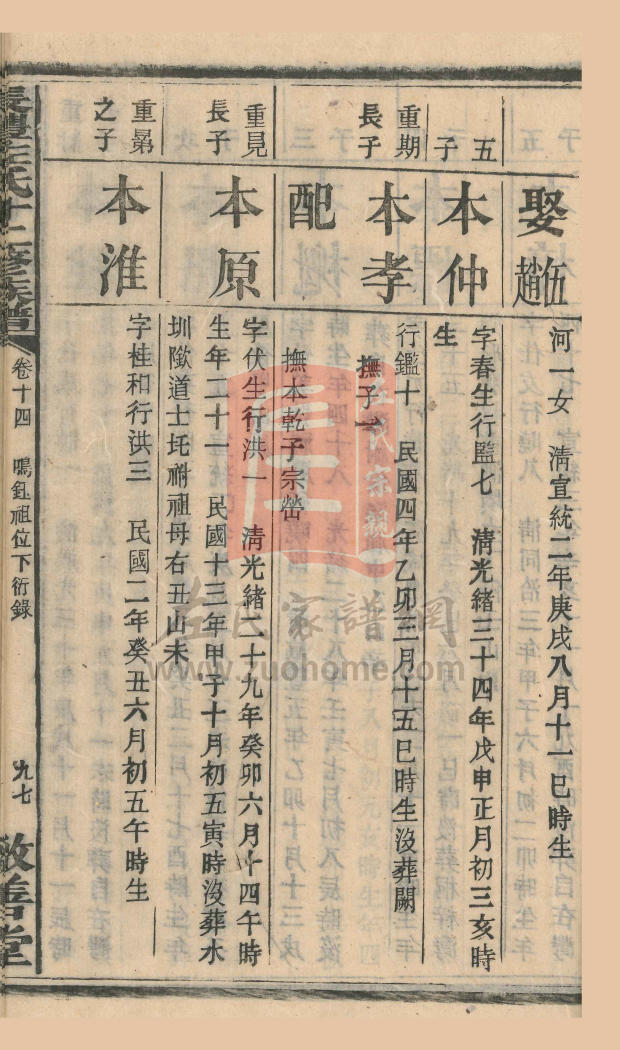 娶伍趙
河一女 清宣統二年庚戌八月十一巳時生
五子
本仲
字春生行監七 清光緒三十四年戊申正月初三亥時
生
重期長子
本孝
行鑑十 民國四年乙卯三月十五巳時生沒葬闕
撫子一
配
撫本乾子宗嶅
重見長子
本原
字伏生行洪一 清光緒二十九年癸卯六月十四午時
生年二十一 民國十三年甲子十月初五寅時沒葬水
圳隂道士坵祔祖母右丑山未
重晜之子
本淮
字桂和行洪三 民國二年癸丑六月初五午時生
氏十二修族譜
卷十四
鳴鈺祖位下衍錄
九七
敬善堂
左氏家譜網
www.zuohome.com